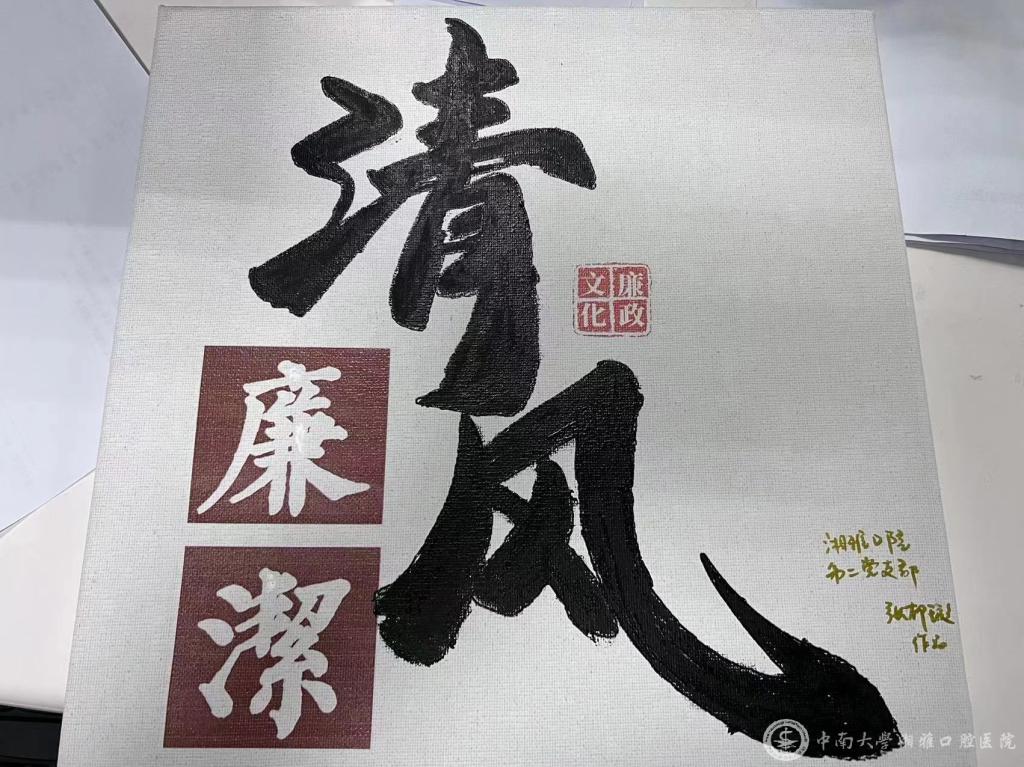 清风
廉政
文化
廉
潔
湘雅口院
第二党支部
张柳
作品
中南大學湘雅口腔医院